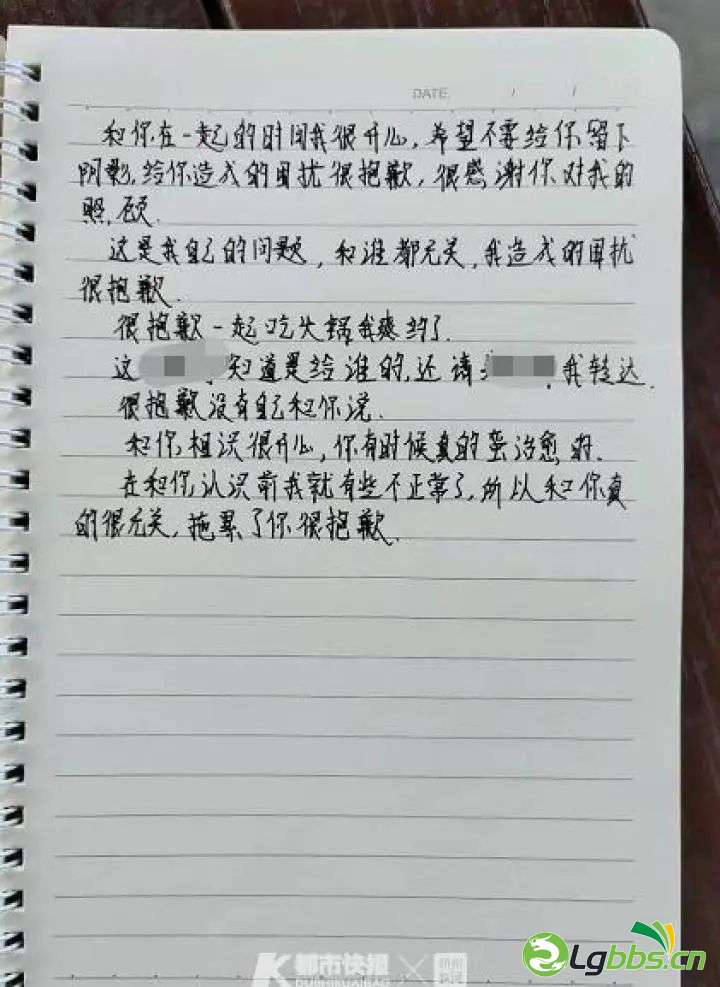 DATE / /
和你在一起的时间我很开心,希望不要给你留下
阴影,给你造成的困扰很抱歉,很感谢你对我的
照顾.
这是我自己的问题,和谁都无关,我造成的困扰
很抱歉.
很抱歉一起吃火锅我爽约了.
这 知道是给谁的,还请 我转达.
很抱歉没有自己和你说.
和你相识很开心,你有时候真的蛮治愈的.
在和你认识前我就有些不正常了,所以和你真
的很无关,拖累了你很抱歉.
都市快报 ×
Lgbbs.cn